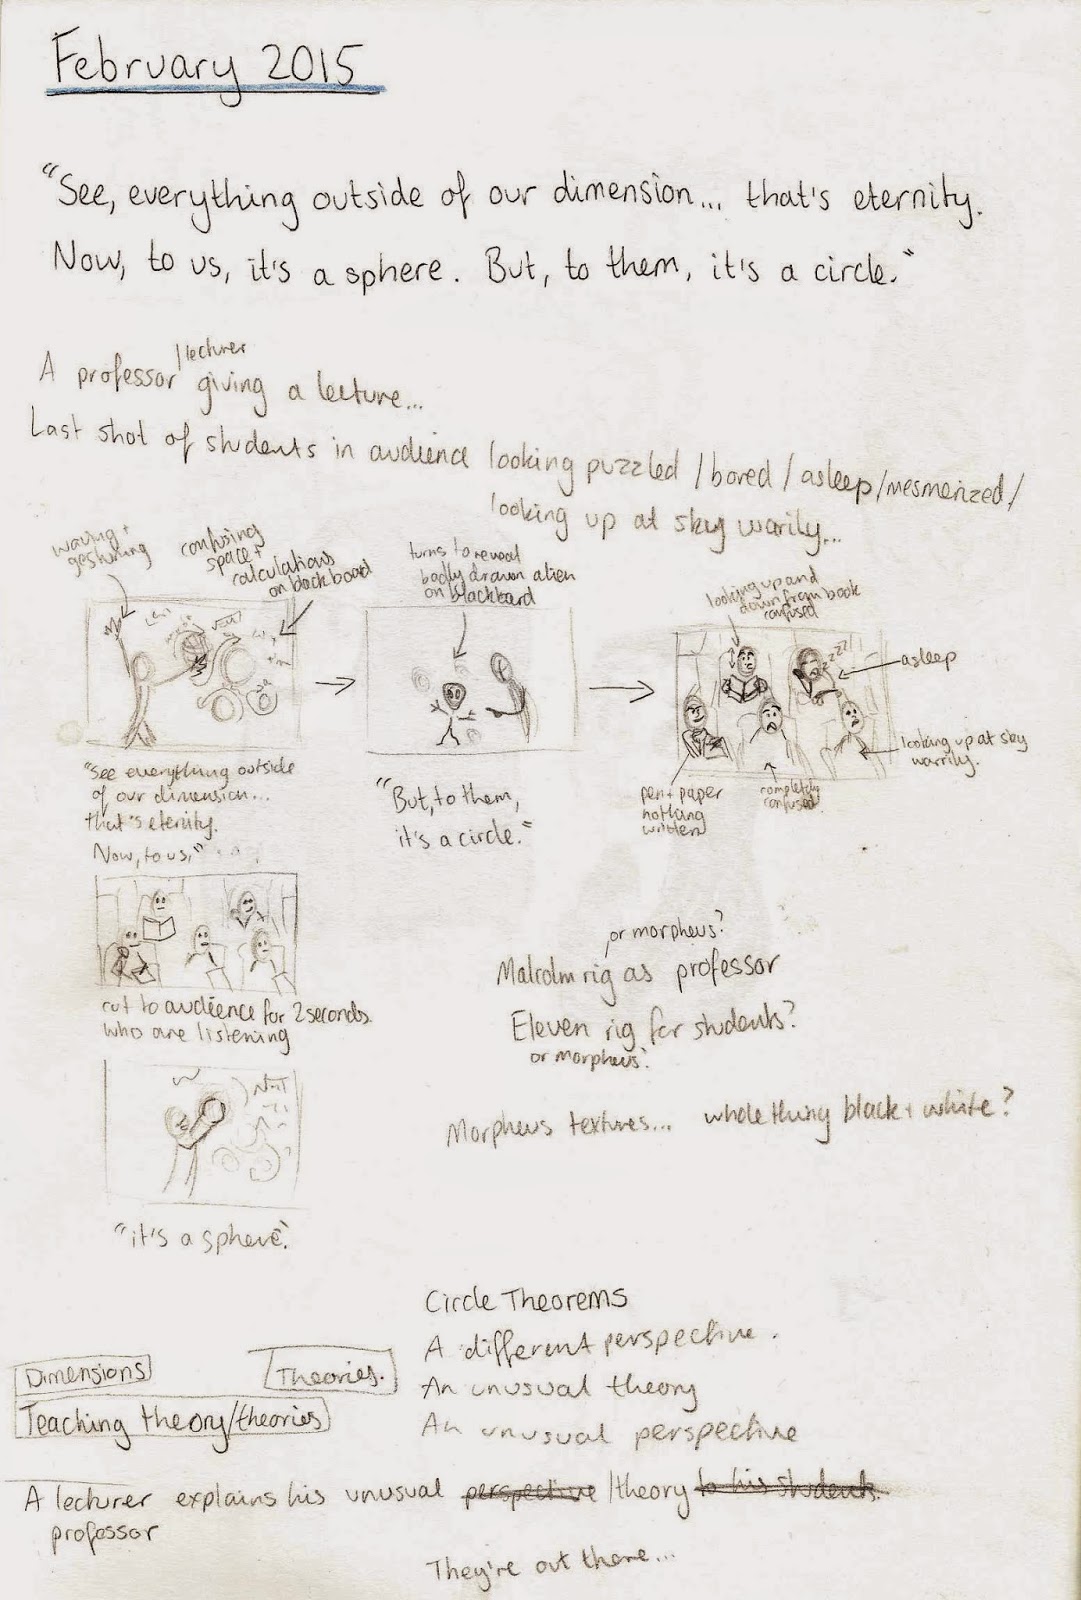 February 2015
"See, everything outside of our dimension... that's eternity.
Now, to us, it's a sphere. But, to them, it's a circle."
/lecturer
A professor giving a lecture...
Last shot of students in audience looking puzzled / bored / asleep / mesmerized /
looking up at sky warily...
waving +
gesturing
confusing
space +
calculations
on blackboard
turns to reveal
badly drawn alien
on blackboard
looking up and
down from book
confused
zzzz
asleep
looking up at sky
warrily.
pen + paper
nothing
written
completely
confused
"See everything outside
of our dimension...
that's eternity.
Now, to us,"
"But, to them,
it's a circle."
cut to audience for 2 seconds.
who are listening
"it's a sphere."
or morpheus?
Malcolm rig as professor
Eleven rig for students?
or morpheus?
Morpheus textures... whole thing black + white?
Circle Theorems
A different perspective.
An unusual theory
An unusual perspective
Dimensions
Theories.
Teaching theory/theories
A lecturer explains his unusual perspective /theory to his students.
professor
They're out there...